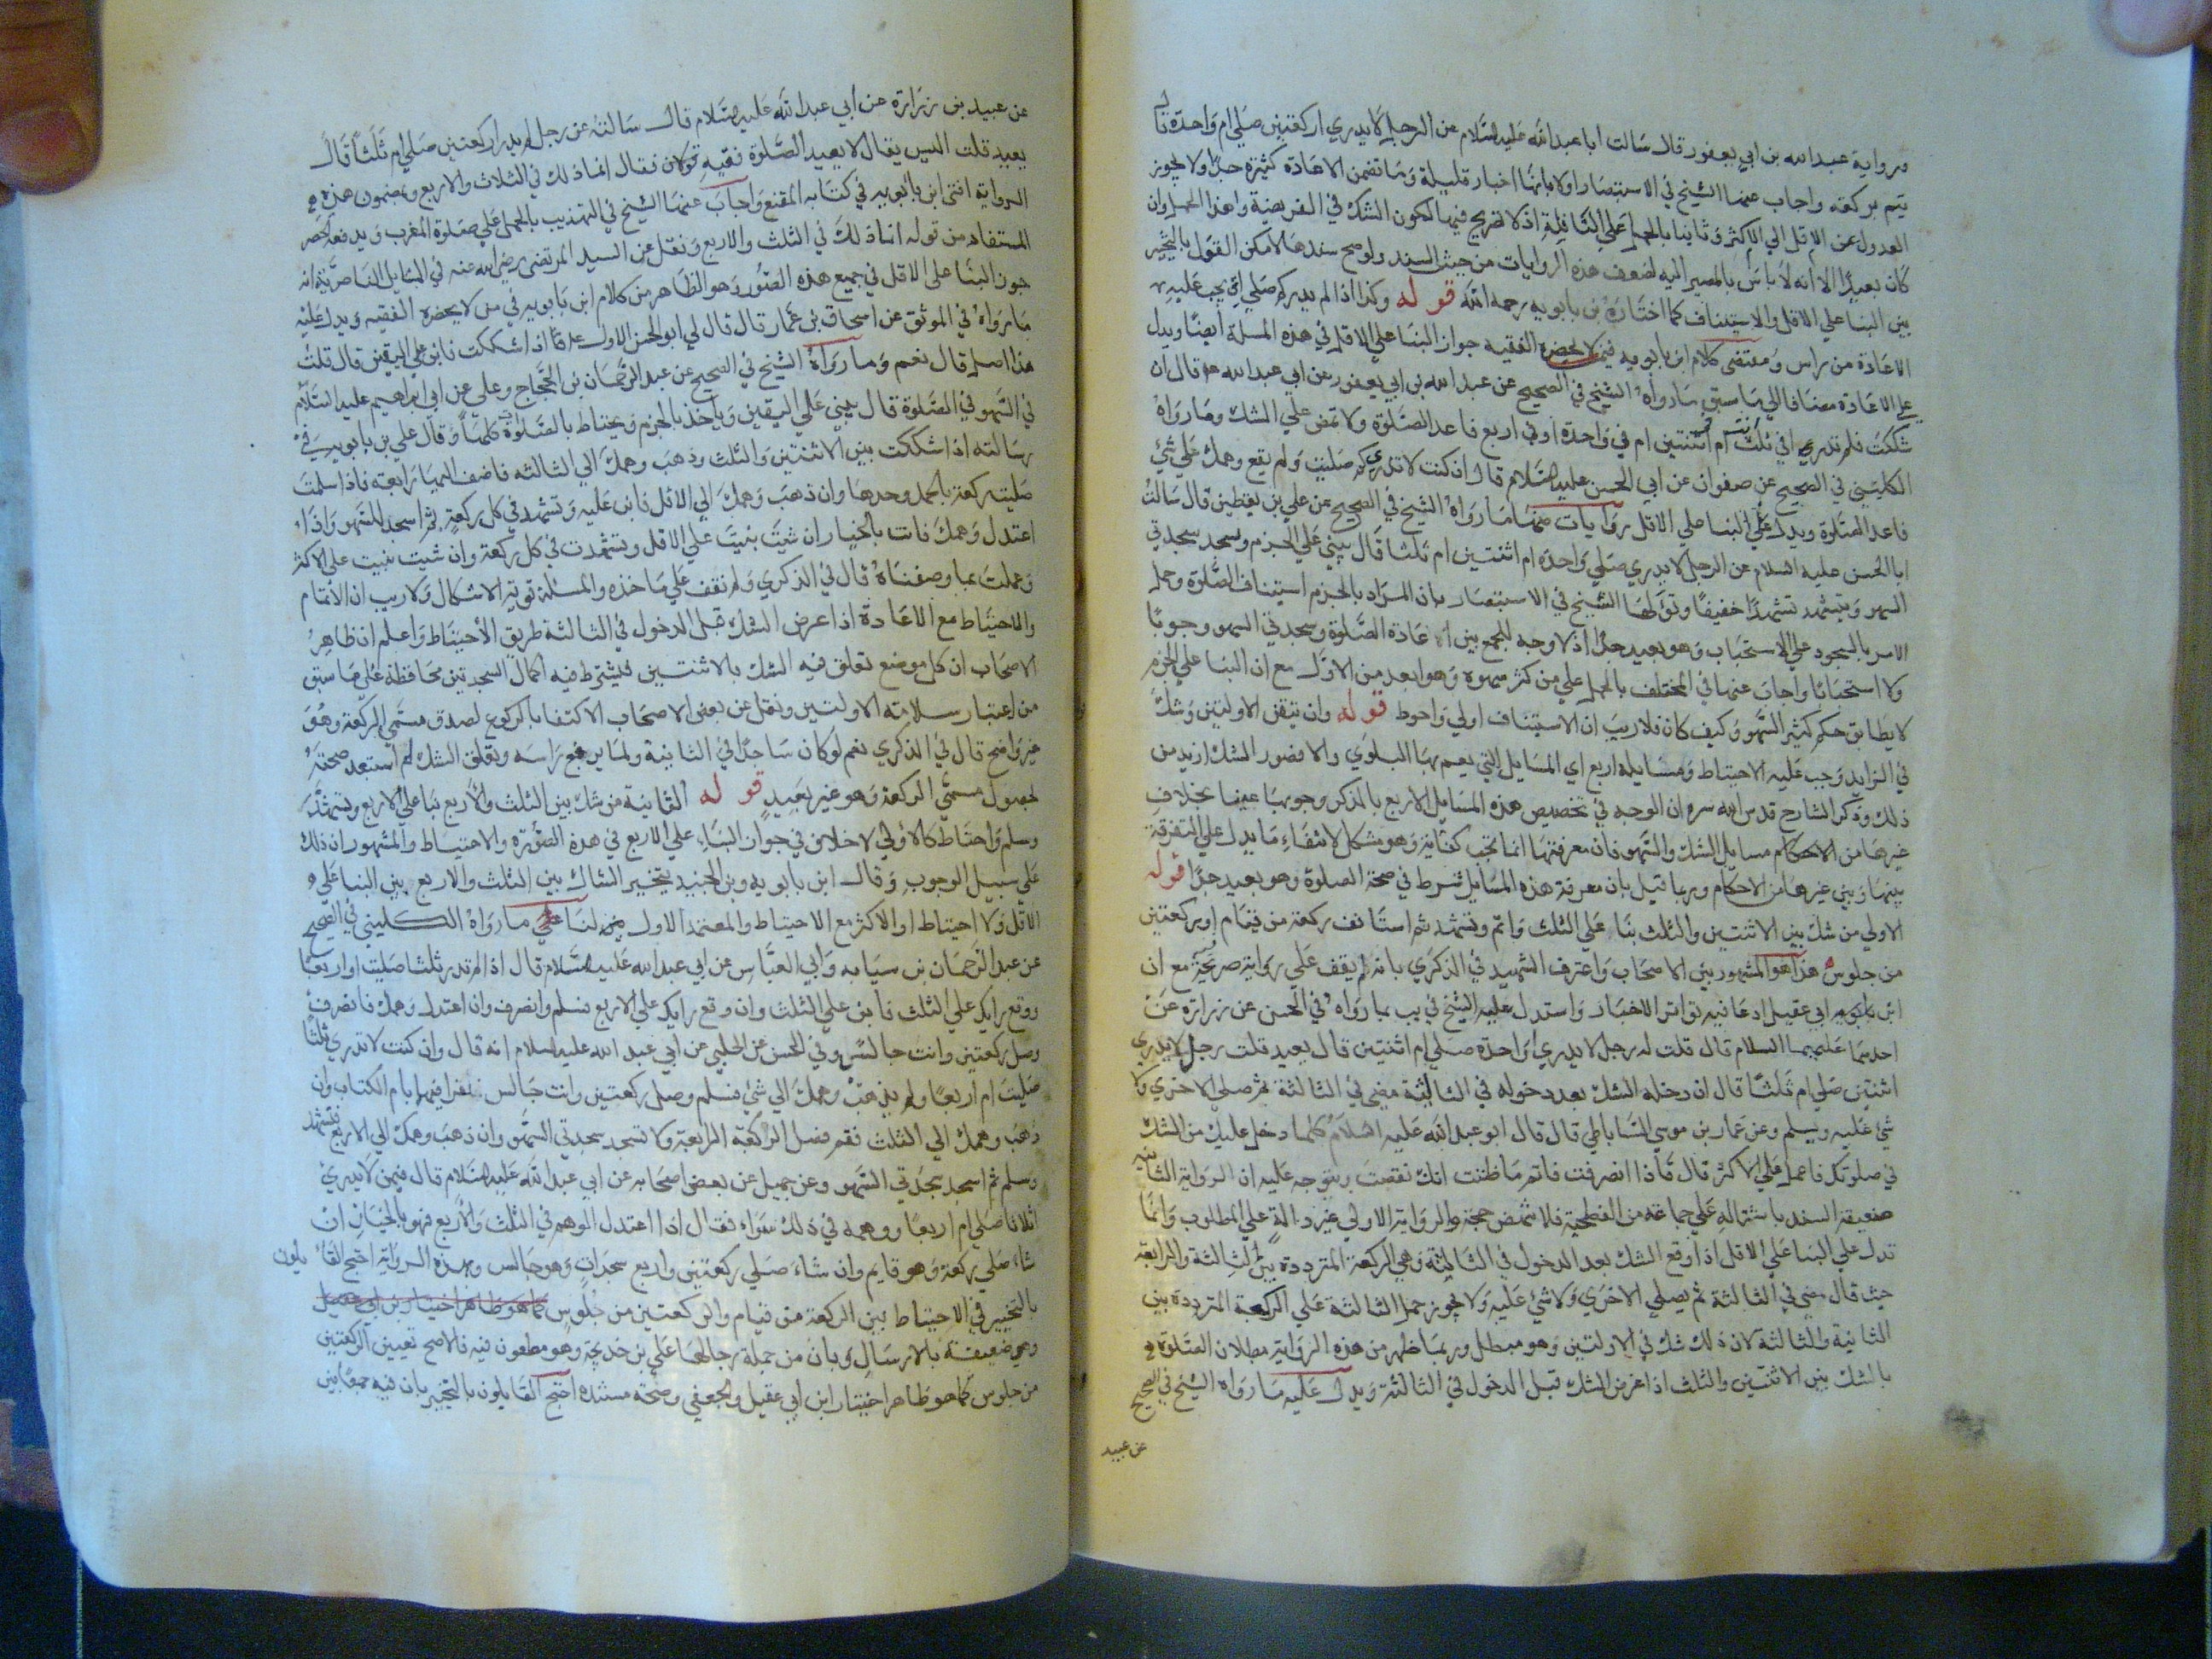 ورواية عبد الله بن ابي يعفور قال سالت ابا عبد الله عليه السلام عن الرجل لا يدري اركعتين صلي ام واحدة قال
يتم بركعة واجاب عنها الشيخ في الاستبصار اولا بانها اخبار قليلة وما تضمن الاعادة كثيرة جدا ولا يجوز
العدول عن الاقل الي الاكثر وثانيا بالحمل علي النافلة اذ لا تصريح فيها بكون الشك في الفريضة وهذا الحمل وان
كان بعيدا الا انه لا باس بالمصير اليه لضعف هذه الروايات من حيث السند ولو صح سندها لامكن القول بالتخيير
بين البنا علي الاقل والاستيناف كما اختاره بن بابويه رحمه الله قوله وكذا اذا لم يدر كم صلي اي يجب عليه
الاعادة من راس ومقتضى كلام ابن بابويه فيمن لا يحضره الفقيه جواز البنا علي الاقل في هذه المسلة ايضا ويدل
علي الاعادة مضافا الي ما سبق ما رواه الشيخ في الصحيح عن عبد الله بن ابي يعفور عن ابي عبد الله قال ان
شككت فلم تدري افي ثلث انت ام اثنتين ام في واحدة او في اربع فاعد الصلوة ولا تمض علي الشك وما رواه
الكليني في الصحيح عن صفوان عن ابي الحسن عليه السلام قال ان كنت لا تدري كم صليت ولم يقع وهمك علي شئ
فاعد الصلوة ويدل علي البنا علي الاقل روايات منها ما رواه الشيخ في الصحيح عن علي بن يقطين قال سالت
ابا الحسن عليه السلام عن الرجل لا يدري صلي واحدة ام اثنتين ام ثلثا قال يبني علي الجزم ويسجد سجدتي
السهو ويتشهد تشهدا خفيفا وتؤلها الشيخ في الاستبصار بان المراد بالجزم استيناف الصلوة وحمل
الامر بالسجود علي الاستحباب وهو بعيد جدا اذ لا وجه للجمع بين اعادة الصلوة وسجدتي السهو وجوبا
ولا استحبابا واجاب عنها في المختلف بالحمل علي من كثر سهوه وهو ابعد من الاول مع ان البنا علي الجزم
لا يطابق حكم كثير السهو وكيف كان فلا ريب ان الاستيناف اولي واحوط قوله وان تيقن الاولتين وشك
في الزايد وجب عليه الاحتياط ومسايله اربع اي المسايل التي يعم بها البلوي والا فصور الشك ازيد من
ذلك وذكر الشارح قدس الله سره ان الوجه في تخصيص هذه المسايل الاربع بالذكر وجوبها عينا بخلاف
غيرها من الاحكام مسايل الشك والسهو فان معرفتها انما تجب كفاية وهو مشكل لانتفاء ما يدل علي التفرقة
بينها وبين غيرها من الاحكام وربما قيل بان معرفة هذه المسايل شرط في صحة الصلوة وهو بعيد جدا قوله
الاولي من شك بين الاثنتين والثلث بنا علي الثلث واتم وتشهد ثم استانف ركعة من قيام او ركعتين
من جلوس هذا هو المشهور بين الاصحاب واعترف الشهيد في الذكري بانه لم يقف علي رواية صريحة مع ان
ابن ابي عقيل ادعا فيه تواتر الاخبار واستدل عليه الشيخ في يب بما رواه في الحسن عن زرارة عن
احدهما عليهما السلام قال قلت له رجل لا يدري اواحدة صلي ام اثنتين قال يعيد قلت رجل لا يدري
اثنتين صلي ام ثلثا قال ان دخله الشك بعد دخوله في الثالثة مضي في الثالثة ثم صلي الاخري ولا
شئ عليه ويسلم وعن عمار بن موسي الساباطي قال قال ابو عبد الله عليه السلام كلما دخل عليك من الشك
في صلوتك فاعمل علي الاكثر قال فاذا انصرفت فاتم ما ظننت انك نقصت ويتوجه عليه ان الرواية الثانية
ضعيفة السند باشتماله علي جماعة من الفطحية فلا تنهض حجة والرواية الاولي غير دالة علي المطلوب وانما
تدل علي البنا علي الاقل اذا وقع الشك بعد الدخول في الثالثة وهي الركعة المترددة بين الثالثة والرابعة
حيث قال مضي في الثالثة ثم يصلي الاخري ولا شئ عليه ولا يجوز حمل الثالثة علي الركعة المترددة بين
الثانية والثالثة لان ذلك شك في الاولتين وهو مبطل وربما ظهر من هذه الرواية بطلان الصلوة
بالشك بين الاثنتين والثلث اذا عرض الشك قبل الدخول في الثالثة ويدل عليه ما رواه الشيخ في الصحيح
عن عبيد
عن عبيد بن زرارة عن ابي عبد الله عليه السلام قال سالته عن رجل لم يدر اركعتين صلي ام ثلثا قال
يعيد قلت اليس يقال لا يعيد الصلوة فقيه فقال انما ذلك في الثلاث والاربع وبمضمون هذه
الرواية افتى ابن بابويه في كتابه المقنع واجاب عنها الشيخ في التهذيب بالحمل علي صلوة المغرب ويدفعه الحصر
المستفاد من قوله انما ذلك في الثلث والاربع ونقل عن السيد المرتضى رضي الله عنه في المسايل الناصرية انه
جوز البنا على الاقل في جميع هذه الصور وهو الظاهر من كلام ابن بابويه في من لا يحضره الفقيه ويدل عليه
ما رواه في الموثق عن اسحاق بن عمار قال قال لي ابو الحسن الاول اذا شككت فابن علي اليقين قال قلت
هذا اصل قال نعم وما رواه الشيخ في الصحيح عن عبد الرحمان بن الحجاج وعلي عن ابي ابراهيم عليه السلام
في السهو في الصلوة قال يبني علي اليقين وياخذ بالجزم ويحتاط بالصلوة كلها وقال علي بن بابويه في
رسالته اذا شككت بين الاثنتين والثلث وذهب وهمك الي الثالثه فاضف اليها رابعة فاذا سلمت
صليت ركعة بالحمد وحدها وان ذهب وهمك الي الاقل فابن عليه وتشهد في كل ركعة ثم اسجد للسهو واذا
اعتدل وهمك فانت بالخيار ان شيت بنيت علي الاقل وتشهدت في كل ركعة وان شيت بنيت علي الاكثر
وعملت بما وصفناه قال في الذكري ولم نقف علي ماخذه والمسئلة قوية الاشكال ولا ريب ان الاتمام
والاحتياط مع الاعادة اذا عرض الشك قبل الدخول في الثالثة طريق الاحتياط واعلم ان ظاهر
الاصحاب ان كل موضع تعلق فيه الشك بالاثنتين فيشترط فيه اكمال السجدتين محافظة علي ما سبق
من اعتبار سلامة الاولتين ونقل عن بعض الاصحاب الاكتفا بالركوع لصدق مسمي الركعة وهو
غير واضح قال في الذكري نعم لو كان ساجدا في الثانية ولما يرفع راسه وتعلق الشك لم استبعد صحته
لحصول مسمي الركعة وهو غير بعيد قوله الثانية من شك بين الثلث والاربع بنا علي الاربع وتشهد
وسلم واحتاط كالاولي لا خلاف في جواز البناء علي الاربع في هذه الصورة والاحتياط والمشهور ان ذلك
علي سبيل الوجوب وقال ابن بابويه وبن الجنيد يتخير الشاك بين الثلث والاربع بين البنا علي
الاقل ولا احتياط او الاكثر مع الاحتياط والمعتمد الاول لنا ما رواه الكليني في الصحيح
عن عبد الرحمان بن سيابه وابي العباس عن ابي عبد الله عليه السلام قال اذا لم تدر ثلثا صليت او اربعا
ووقع رايك علي الثلث فابن علي الثلث وان وقع رايك علي الاربع فسلم وانصرف وان اعتدل وهمك فانصرف
وصل ركعتين وانت جالس وفي الحسن عن الحلبي عن ابي عبد الله عليه السلام انه قال وان كنت لا تدري ثلثا
صليت ام اربعا ولم يذهب وهمك الي شئ فسلم وصل ركعتين وانت جالس تقرا فيهما بام الكتاب وان
ذهب وهمك الي الثلث فقم فصل الركعة الرابعة ولا تسجد سجدتي السهو وان ذهب وهمك الي الاربع فتشهد
وسلم ثم اسجد سجدتي السهو وعن جميل عن بعض اصحابه عن ابي عبد الله عليه السلام قال فيمن لا يدري
اثلاثا صلي ام اربعا ووهمه في ذلك سواء فقال اذا اعتدل الوهم في الثلث والاربع فهو بالخيار ان
شاء صلي ركعة وهو قايم وان شاء صلي ركعتين واربع سجدات وهو جالس وبهذه الرواية احتج القايلون
بالتخيير في الاحتياط بين الركعة من قيام والركعتين من جلوس كما هو ظاهر اختيار بن ابي عقيل
وهي ضعيفة بالارسال وبان من جملة رجالها علي بن حديد وهو مطعون فيه فالاصح تعيين الركعتين
من جلوس كما هو ظاهر اختيار ابن ابي عقيل والجعفي وصحة مستنده احتج القايلون بالتخيير بان فيه جمعا بين